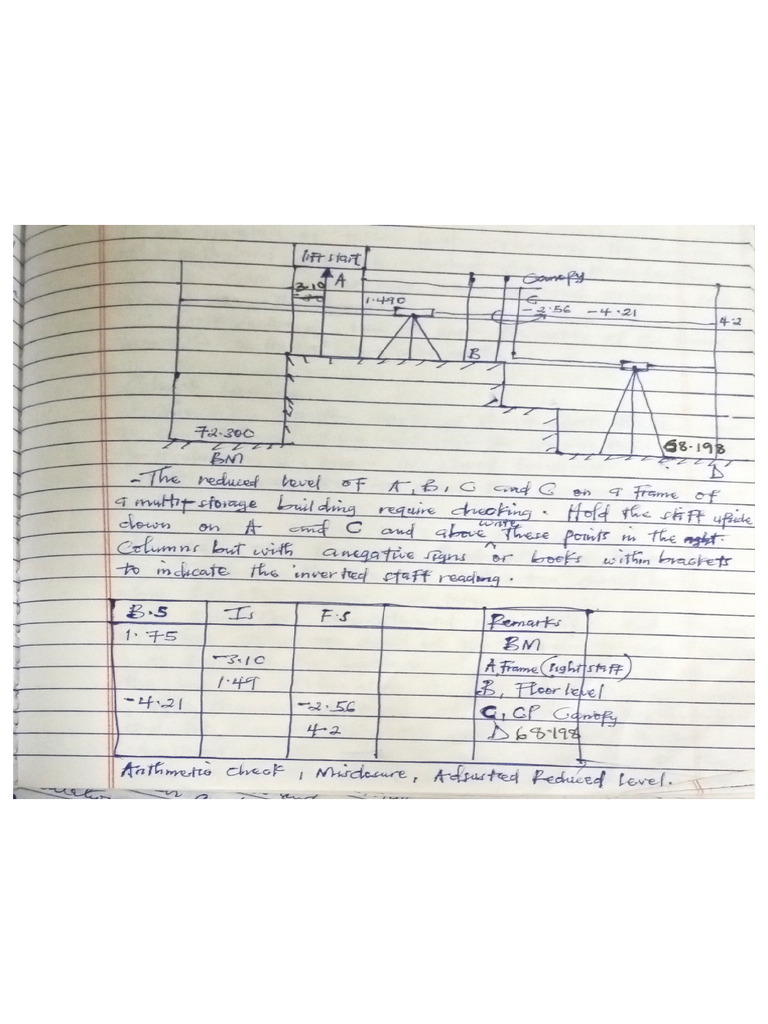 lift start
A
3.10
1.490
Canopy
C
-2.56 -4.21
4.2
B
72.300
BM
68.198
D
- The reduced level of A, B, C and C on a frame of
a multi-storage building require checking. Hold the staff upside
down on A and C and above these points in the
write
Columns but with a negative signs or books within brackets
to indicate the inverted staff reading.
B.S Is F.S Remarks
1.75 BM
-3.10 A, Frame (right staff)
1.49 B, Floor level
-4.21 -2.56 C, CP Canopy
4.2 D 68.198
Arithmetic check, Misclosure, Adjusted Reduced Level.